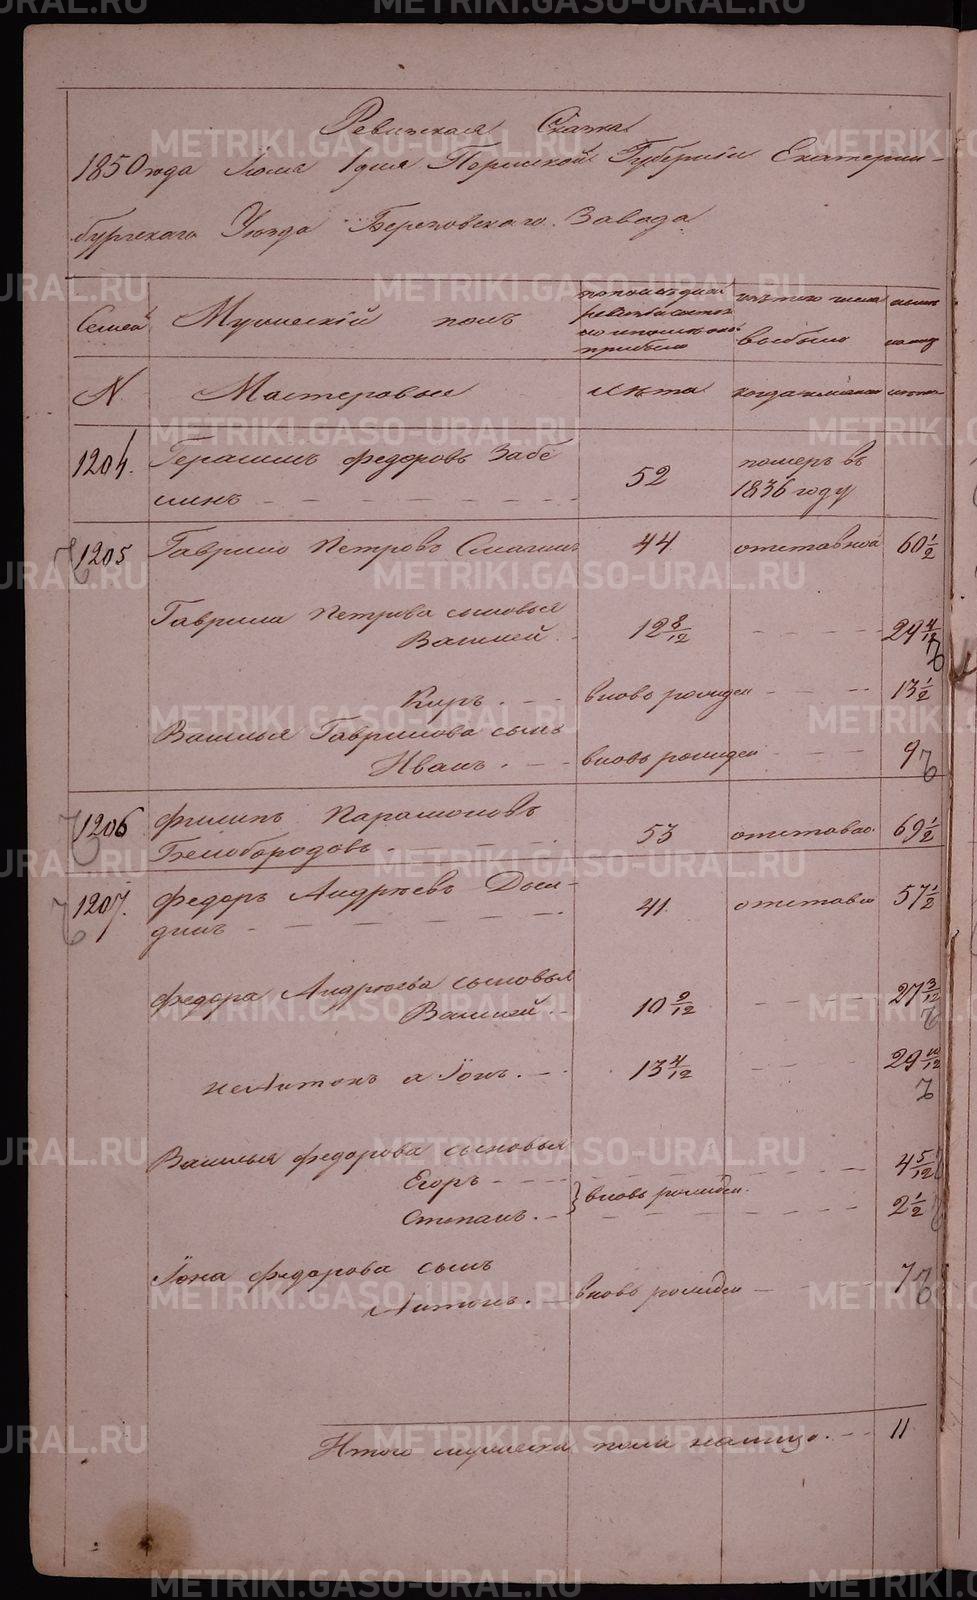 Ревизская Сказка
1850 года Июля 1 дня Пермской Губернiи Екатерин-
бургскаго Уѣзда Березовскаго Завода
Семей Мужескiй полъ по последней ревизiи состояло и послѣ оной прибыло изъ того числа выбыло нынѣ на лицо
N Мастеровые лѣта когда именно лѣта
1204. Герасимъ Федоровъ Забе 52 померъ въ
линъ 1836 году
1205 Гаврило Петровъ Смагинъ 44 отставной 60 1/2
Гаврила Петрова сыновья
Василей 12 8/12 29
Киръ. вновь рожден 13 1/2
Василья Гаврилова сынъ
Иванъ. вновь рожден 9
1206 Филипъ Парамоновъ
Белобородовъ 53 отставно. 69 1/2
1207. Федоръ Андрѣевъ 41. отставно 57 1/2
Федора Андрѣева сыновья
Василей. 10 9/12 27 3/12
не Антонъ а Iонъ. 13 4/12 29 10/12
Василья Федорова сыновья
Егоръ 4 5/12
Степанъ. } вновь рожден. 2 1/2
Iона Федорова сынъ
Антонъ. вновь рожден 7
Итого мужеска пола налицо. 11
METRIKI.GASO-URAL.RU